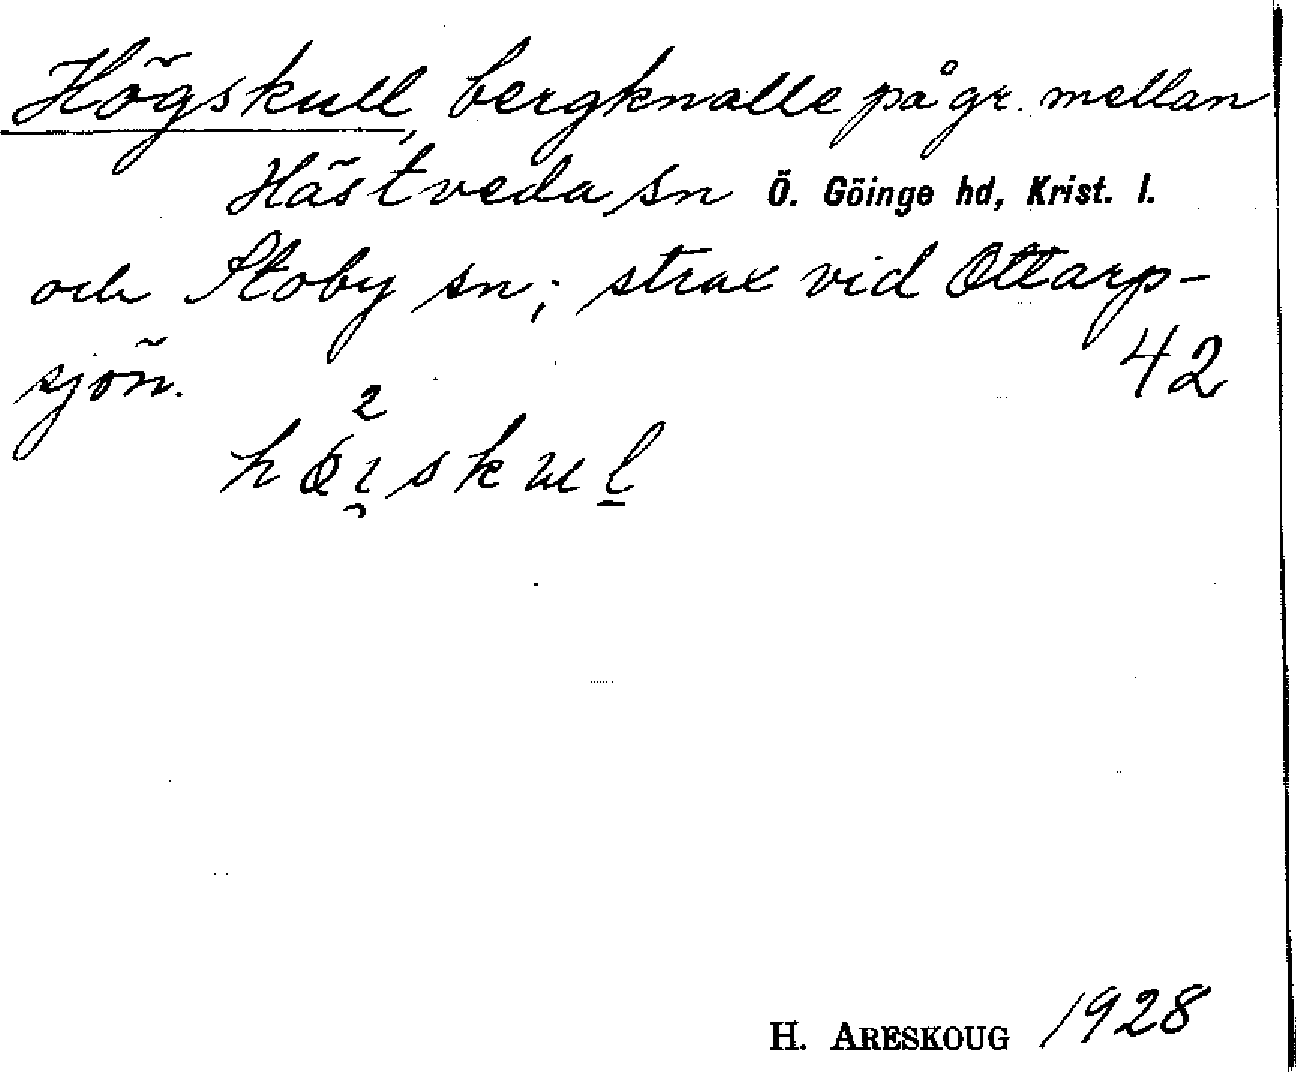 Högskull, bergknalle på gr. mellan
Hästveda sn Ö. Göinge hd, Krist. l.
och Stoby sn; strax vid Ottarp-
sjön.
42
2
høi̯skul̲
H. ARESKOUG 1928